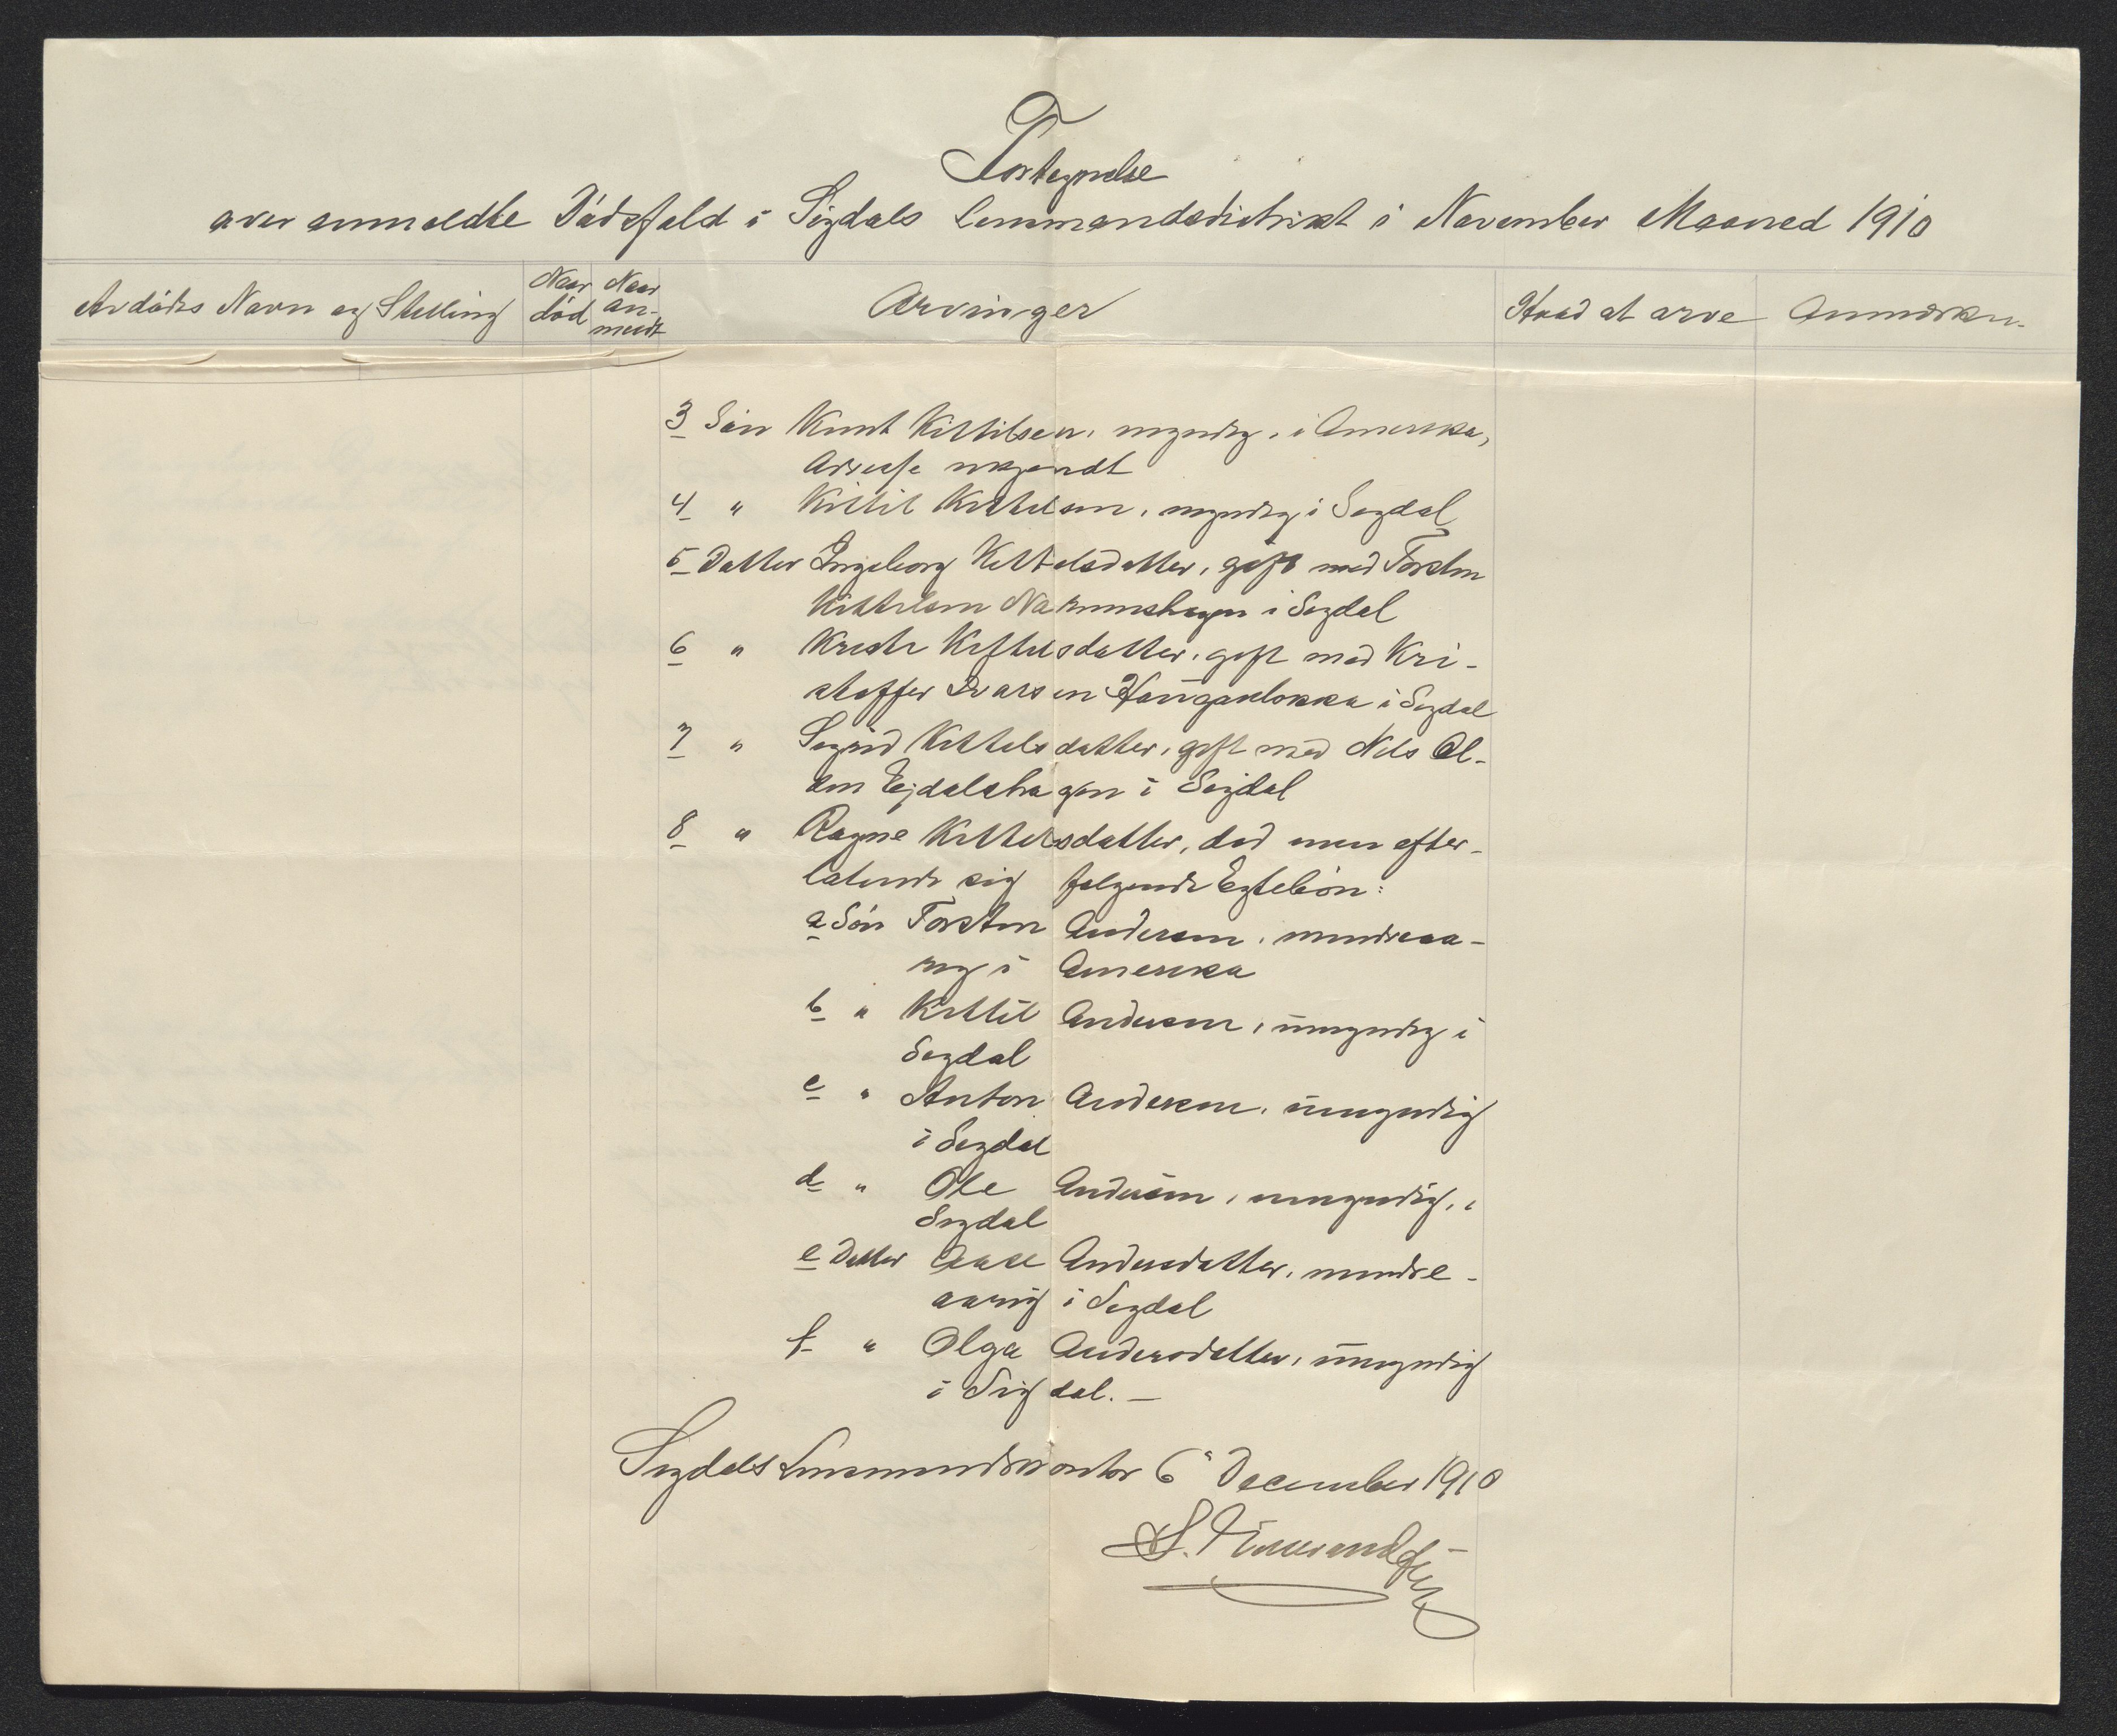 Fortegnelse
over anmeldte Dödsfald i Sigdals Lensmandsdistrikt i November Maaned 1910
Avdödes Navn og Stilling
Naar död
Naar an-meldt
Arvinger
Hvad at arve
Anmærkn.
3 Sön Knut Kittilsen, myndig, i Amerika,
Adresse ukjendt
4 " Kittil Kittelsen, myndig i Sigdal
5 Datter Ingeborg Kittelsdatter, gift med Torsten
Kittelsen i Sigdal
6 " Kristi Kittelsdatter, gift med Kri-
stoffer Ivarsen Haugaslokka i Sigdal
7 " Sigrid Kittelsdatter, gift med Nils Ol-
sen Ejdalshagen i Sigdal
8 " Ragne Kittelsdatter, död men efter-
latende sig følgende Egtebörn:
a Sön Torsten Andersen, mindreaa-
rig i Amerika
b " Kittil Andersen, umyndig i
Sigdal
c " Anton Andersen, umyndig
i Sigdal
d " Ole Andersen, umyndig, i
Sigdal
e Datter Aase Andersdatter, mindre-
aarig i Sigdal
f " Olga Andersdatter, umyndig
i Sigdal. —
Sigdals Lensmandskontor 6" December 1910